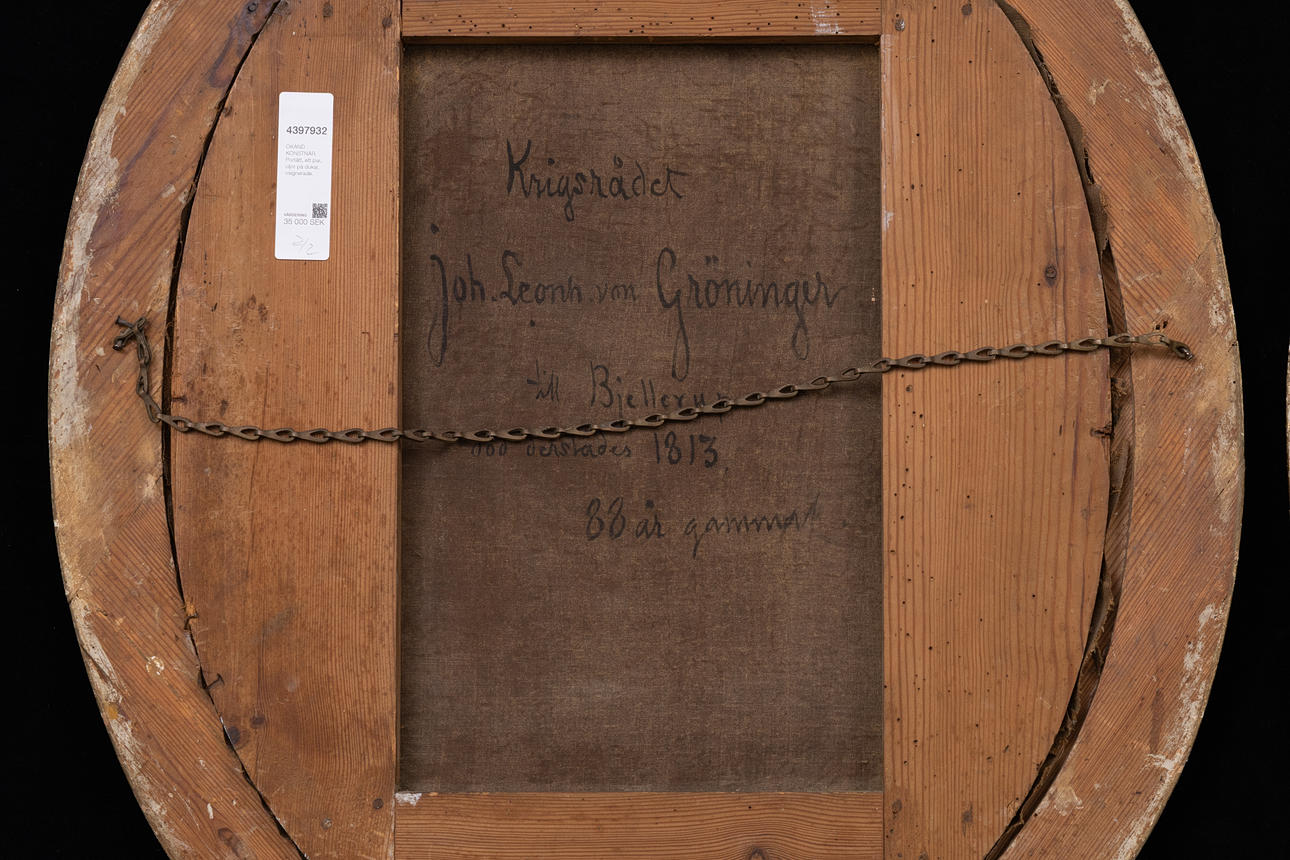 4397932
OKÄND
KONSTNÄR,
Porträtt, ett par,
olja på duk,
osignerade.
VÄRDERING
35 000 SEK
2/2
Krigsrådet
Joh. Leonh. von Gröninger
till Bjellerup
död derstädes 1813,
88 år gammal.